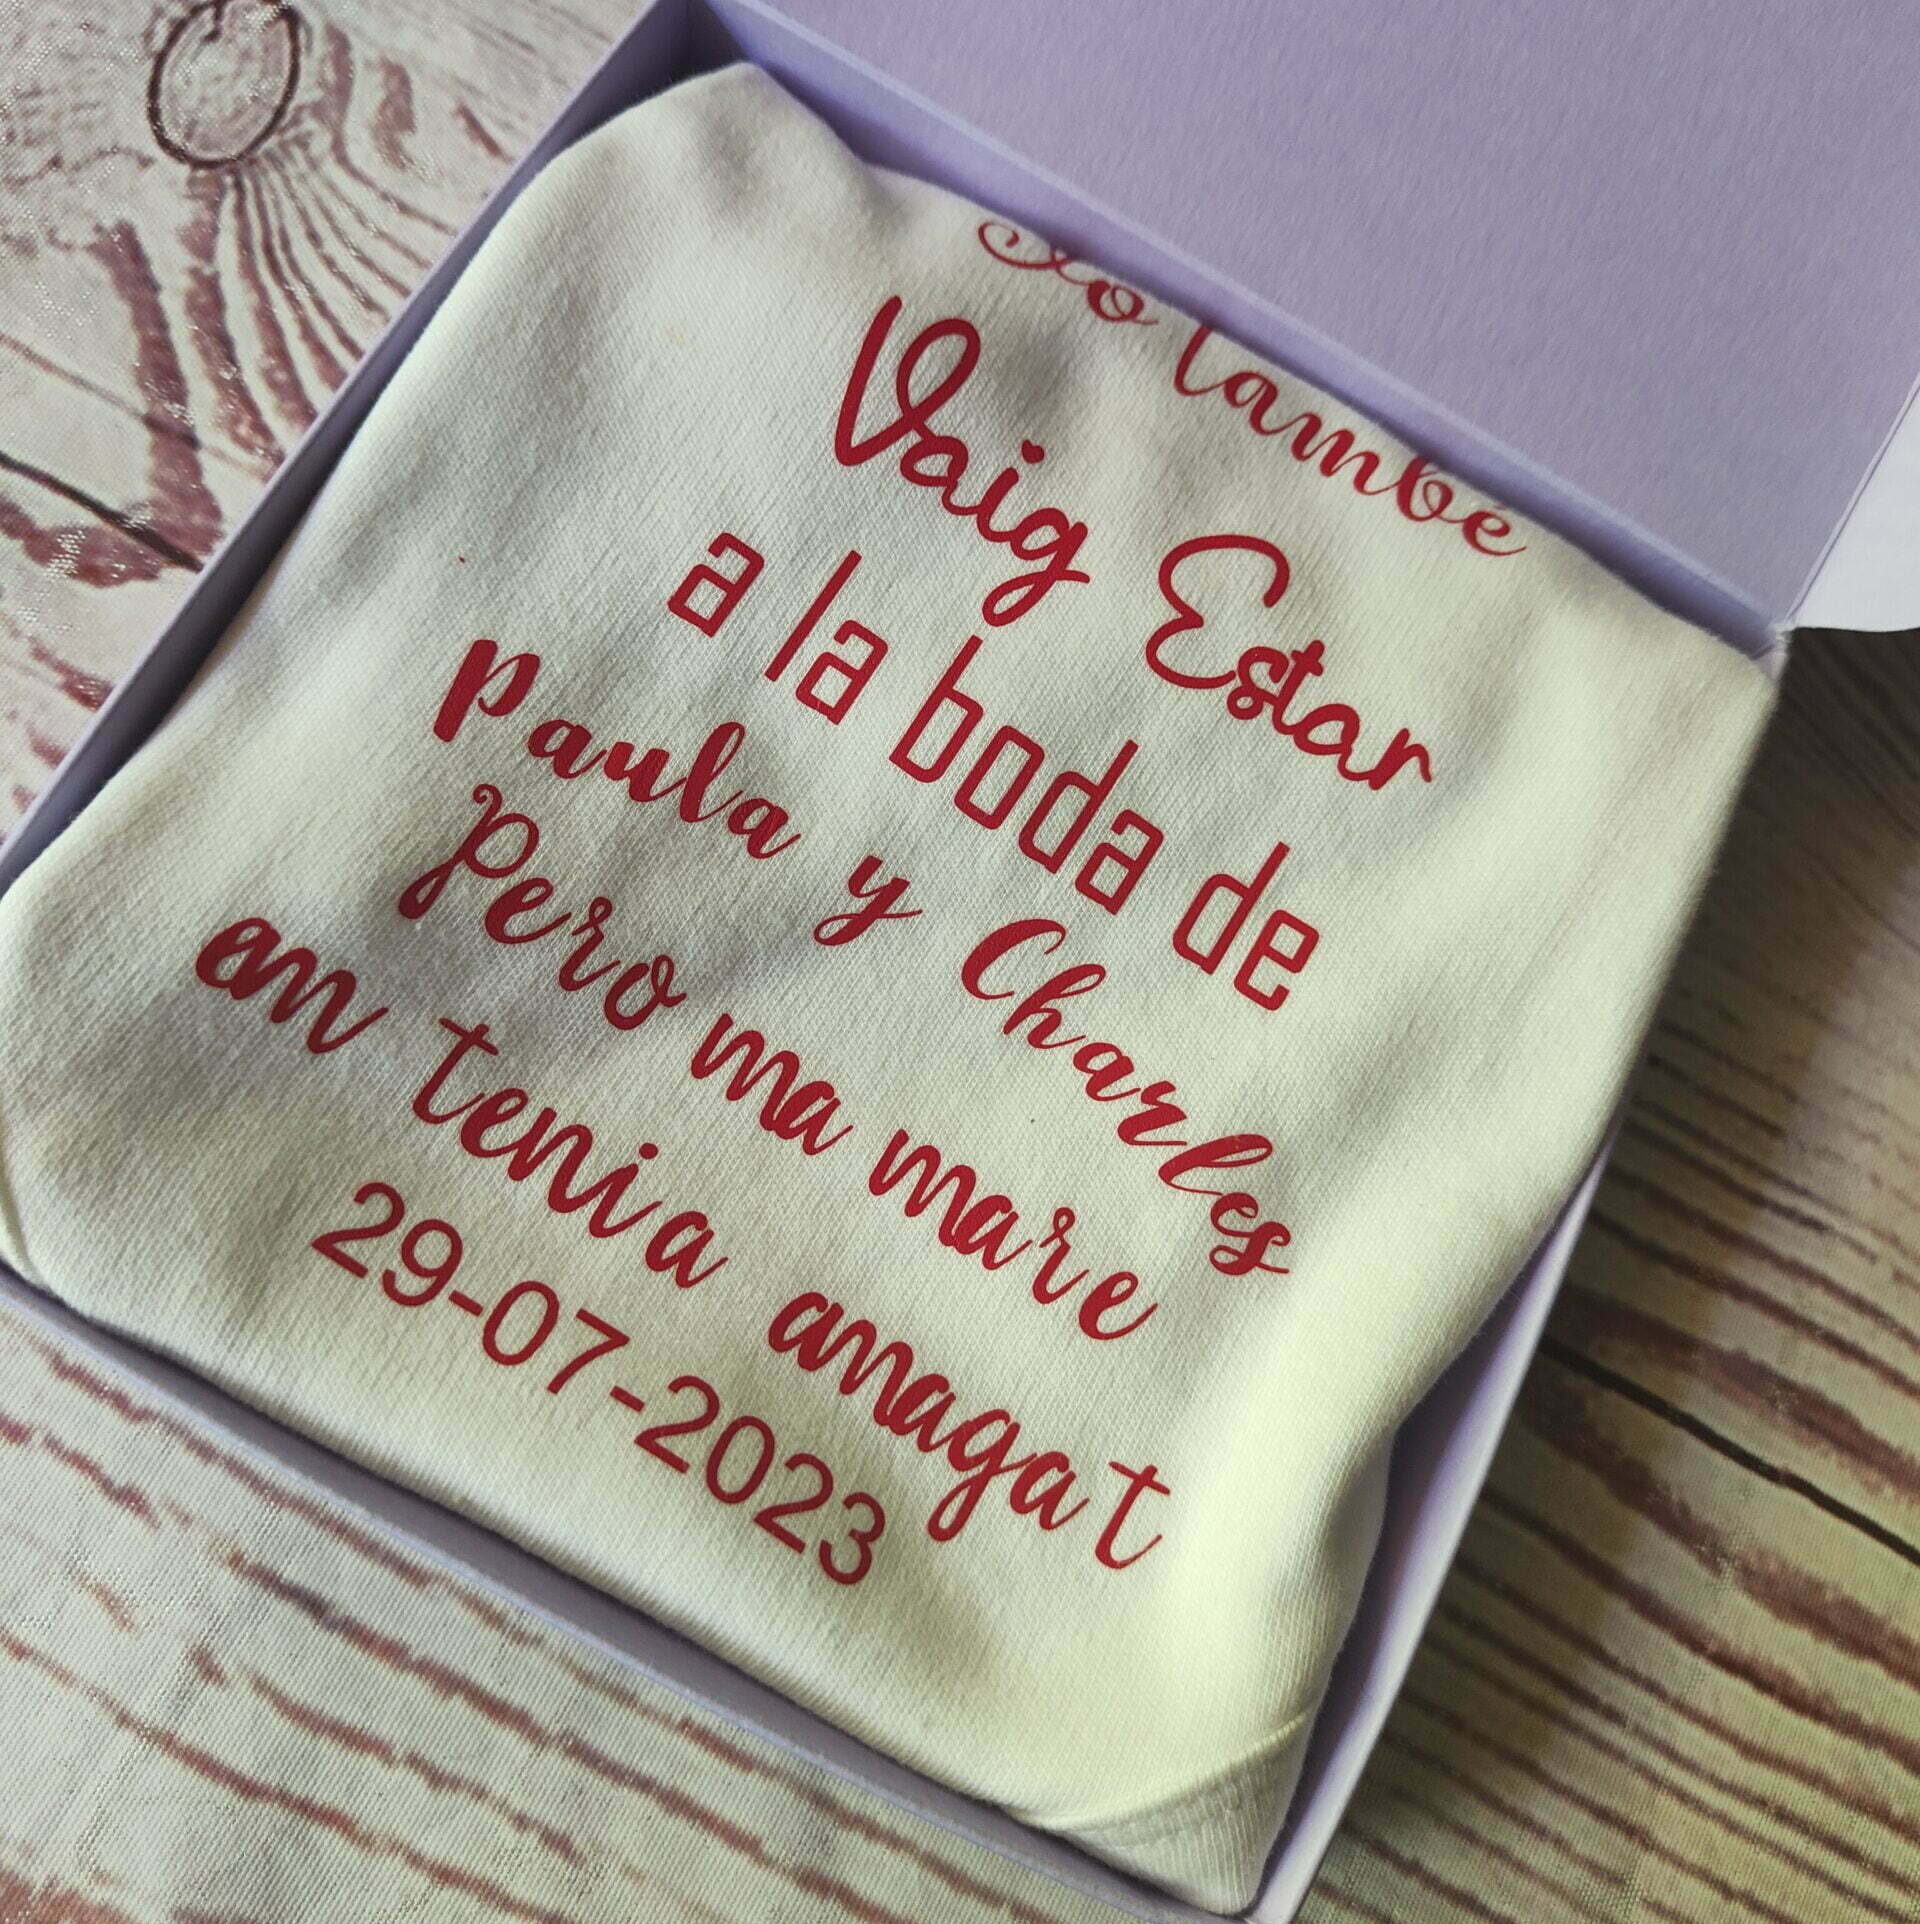 Jo també
Vaig Estar
a la boda de
Paula y Charles
Pero ma mare
em tenia amagat
29-07-2023